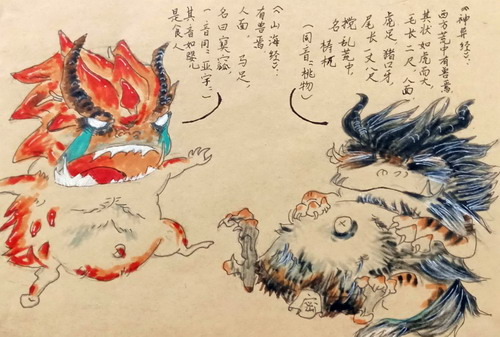 《神异经》:
西方荒中有兽焉
其状如虎而大,
毛长二尺,人面,
虎足,猪口牙,
尾长一丈八尺
搅乱荒中,
名 梼杌
(同音:桃物)
《山海经》:
有兽焉
人面 马足,
名曰窫窳,
(音同:亚宇:)
其音如婴儿
是食人